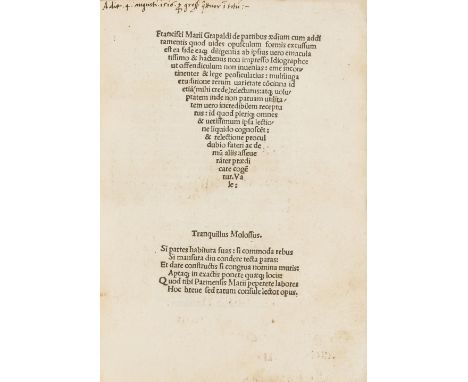 A di 4. augusti 1516
Francisci Marii Grapaldi de partibus ædium cum addi
ramentis quod uides opusculum formis excussum
est ea fide eaq; diligentia ab ipsius uero emacula
tissimo & hactenus non impresso Idiographo:
ut offendiculum non inuenias: eme incon
tinenter & lege pensiculatius: multiiuga
eruditione rerum uarietate cõcinna id
etiã mihi crede: relecturus: atq; uolu
ptatem inde non paruam utilita
tem uero incredibilem receptu
rus: id quod pleriq; omnes
& uerissimum ipsa lectio
ne liquido cognoscẽt:
& relectione procul
dubio fateri ac de
mũ aliis asseue
rãter prædi
care cogẽ
tur. Va
le:
Tranquillus Molossus.
Si partes habitura suas: si commoda rebus
Si mansura diu condere tecta paras:
Et dare constructis si congrua nomina muris:
Aptaq; in exactis ponere quæq; locis:
Quod tibi Parmensis Marii peperere labores
Hoc breue sed tatum consule lector opus.